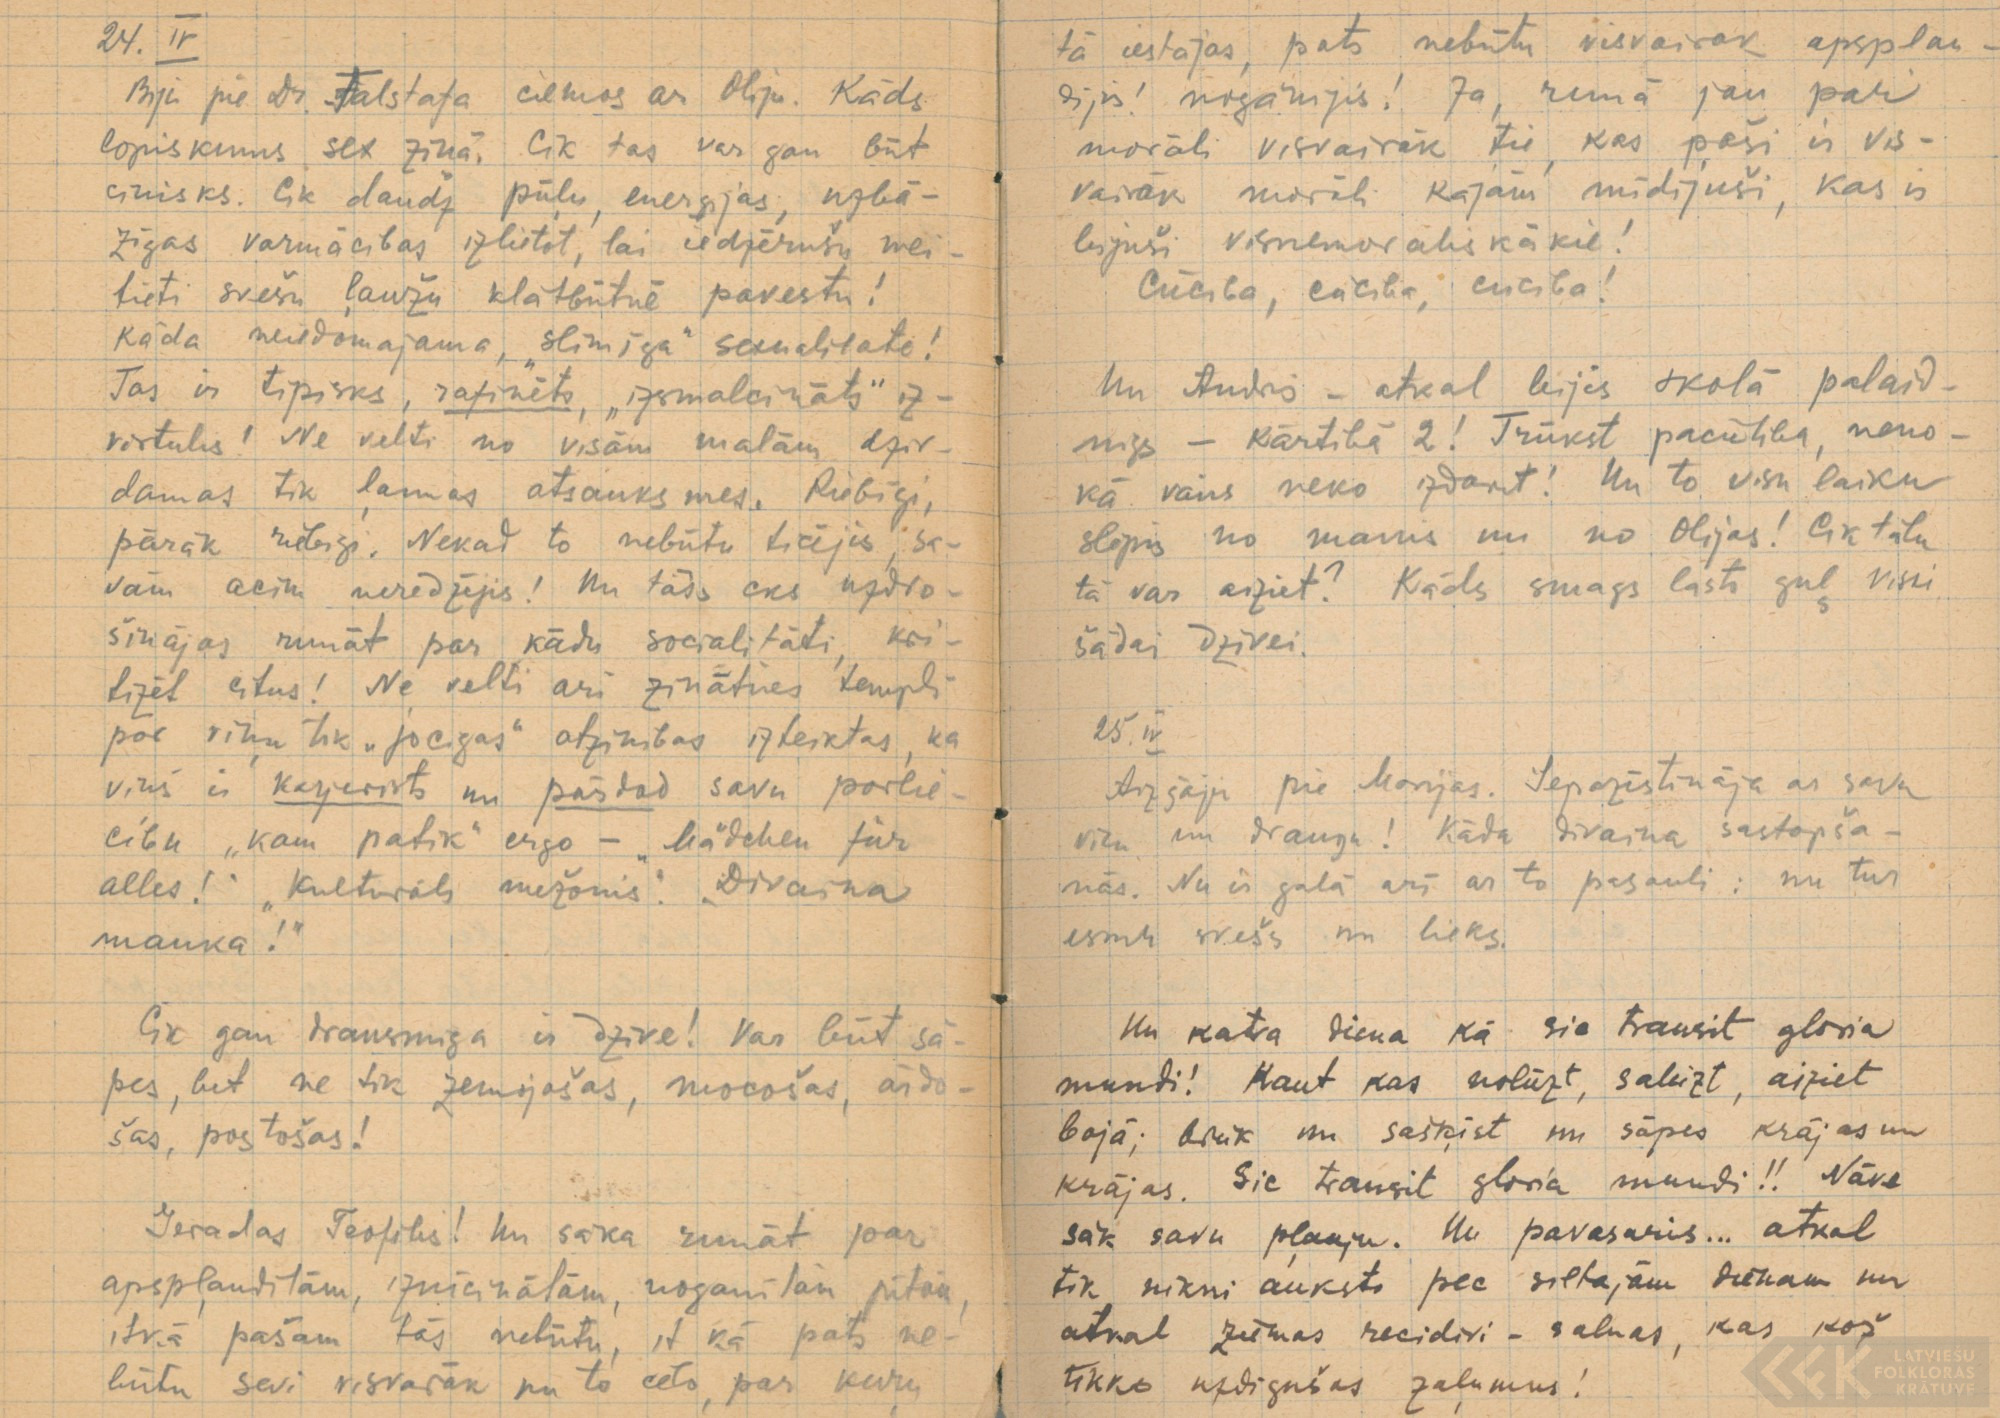 24. IV
Biju pie Dr. Falstafa ciemos ar Oliju. Kāds
lopiskums sex ziņā. Cik tas var gan būt
cinisks. Cik daudz pūļu, enerģijas, uzbā-
zīgas varmācības izlietot, lai iedzērušu mei-
tieti svešu ļaužu klātbūtnē pavestu!
Kāda neiedomājama, „slimīga" sexualitate!
Tas ir tipisks, rafinēts, „izsmalcināts" iz-
virtulis! Ne velti no visām malām dzir-
damas tik ļaunas atsauksmes. Riebīgi,
pārāk riebīgi. Nekad to nebūtu ticējis, sa-
vām acīm neredzējis! Un tāds cks uzdro-
šinājas runāt par kādu socialitāti, kri-
tizēt citus! Ne velti arī zinātnes templī
par viņu tik „jocīgas" atzinības izteiktas, ka
viņš ir karjerists un pārdod savu pārlie-
cību „kam patīk" ergo – „Mädchen für
alles!" „Kulturāls mežonis". „Dīvaina
mauka!"
Cik gan drausmīga ir dzīve! Var būt sā-
pes, bet ne tik zemojošas, mocošas, ārdo-
šas, postošas!
Ieradas Teofilis! Un sāka runāt par
apspļaudītām, iznīcinātām, noganītām jūtām,
itkā pašam tās nebūtu, it kā pats ne-
būtu sevi visvairāk un to ceto, par kuru
tā iestājas, pats nebūtu visvairāk apspļau-
dijis! nogānījis! Ja, runā jau par
morāli visvairāk tie, kas paši ir vis-
vairāk morāli kājām mīdījuši, kas ir
bijuši visnemorāliskākie!
Cūcība, cūcība, cūcība!
Un Andris – atkal bijis skolā palaid-
nīgs – Kārtībā 2! Trūkst pacietība, neno-
kā vairs neko izdarīt! Un to visu laiku
slēpis no manis un no Olijas! Cik tālu
tā var aiziet? Kāds smags lāsts guļ visai
šādai dzīvei.
25. IV
Aizgāju pie Marijas. Iepazīstināja ar savu
vīru un draugu! Kāda dīvaina sastapša-
nās. Nu ir galā arī ar to pasauli: nu tur
esmu svešs un lieks.
Un katra diena kā sic transit gloria
mundi! Kaut kas nolūzt, salūzt, aiziet
bojā; brūk un sašķīst un sāpes krājas un
krājas. Sic transit gloria mundi!! Nāve
sāk savu pļauju. Un pavasaris... atkal
tik nikni auksts pēc siltajām dienām un
atkal ziemas recidivi – salnas, kas kož
tikko uzdīgušos zaļumus!
LATVIEŠU
FOLKLORAS
KRĀTUVE